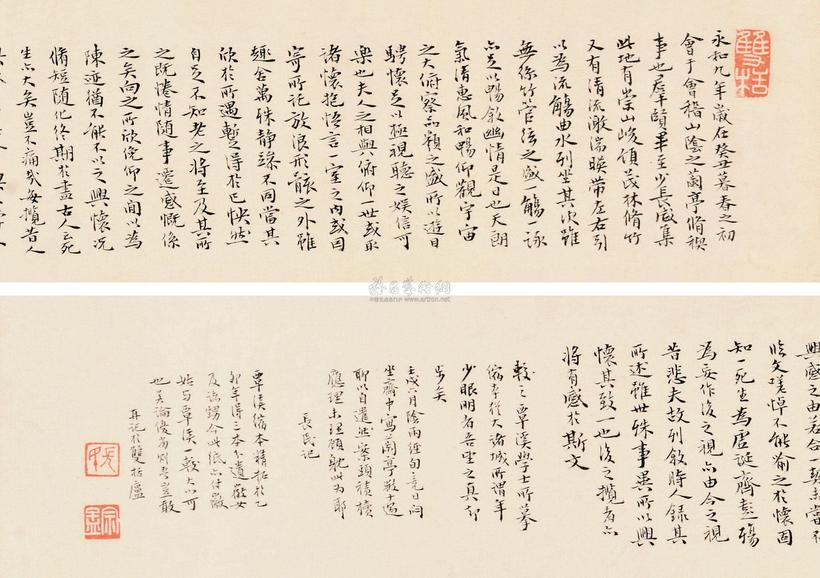 雙栝
永和九年歲在癸丑暮春之初
會于會稽山陰之蘭亭脩稧
事也羣賢畢至少長咸集
此地有崇山峻領茂林脩竹
又有清流激湍暎帶左右引
以為流觴曲水列坐其次雖
無絲竹管弦之盛一觴一詠
亦足以暢敘幽情是日也天朗
氣清惠風和暢仰觀宇宙
之大俯察品類之盛所以遊目
騁懷足以極視聽之娛信可
樂也夫人之相與俯仰一世或取
諸懷抱悟言一室之內或因
寄所託放浪形骸之外雖
趣舍萬殊靜躁不同當其
欣於所遇蹔得於己快然
自足不知老之將至及其所
之既惓情隨事遷感慨係
之矣向之所欣俛仰之間以為
陳迹猶不能不以之興懷況
脩短隨化終期於盡古人云死
生亦大矣豈不痛哉每攬昔人
雅昌藝術網
興感之由若合
臨文嗟悼不能喻之於懷固
知一死生為虛誕齊彭殤
為妄作後之視今亦由今之視
昔悲夫故列敘時人錄其
所述雖世殊事異所以興
懷其致一也後之攬者亦
將有感於斯文
較之覃溪學士所摹
縮本
少眼明者吾坐之真
步矣
壬戌六月陰雨經旬竟日悶
坐齋中寫蘭亭數十過
聊以自遣然案頭積牘
應理未理
長民記
覃溪縮本精拓於乙
卯年得三本
姑与覃溪一較大小可
也若論優劣則吾豈敢
再記於雙栝廬